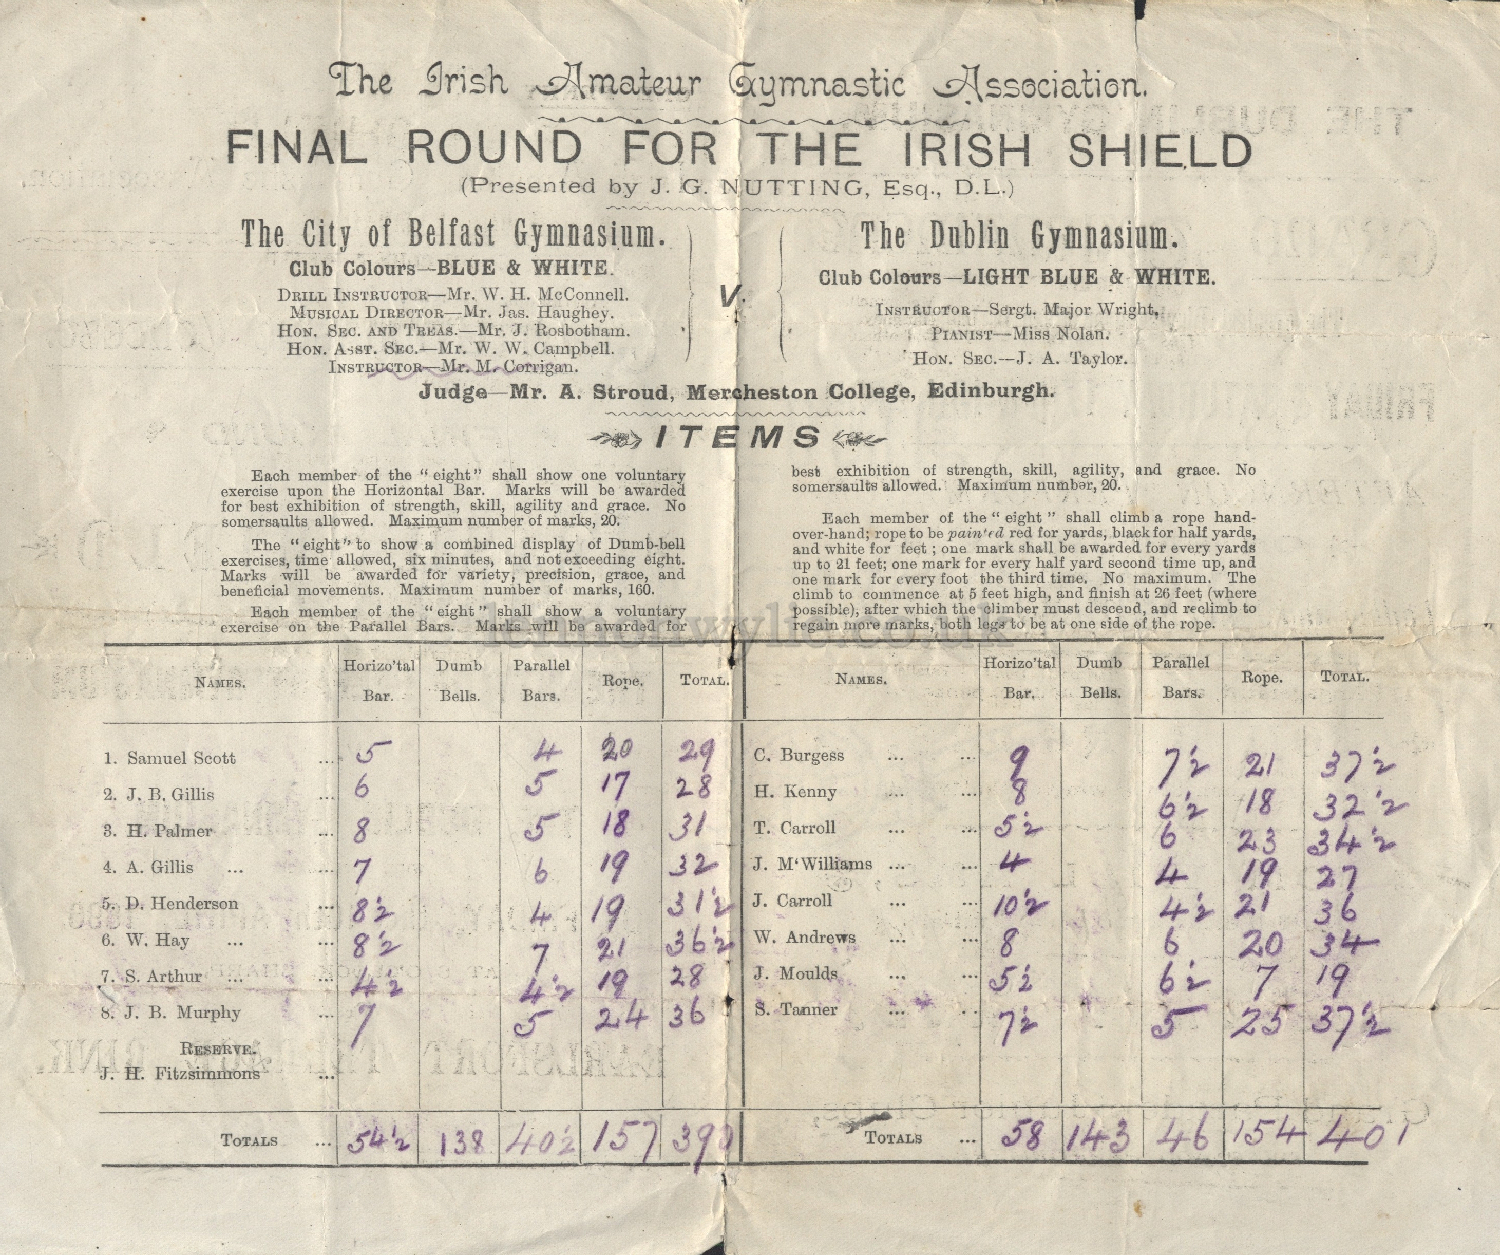 The Irish Amateur Gymnastic Association.
FINAL ROUND FOR THE IRISH SHIELD
(Presented by J. G. NUTTING, Esq., D.L.)
The City of Belfast Gymnasium.
Club Colours—BLUE & WHITE.
DRILL INSTRUCTOR—Mr. W. H. McConnell.
MUSICAL DIRECTOR—Mr. Jas. Haughey.
HON. SEC. AND TREAS.—Mr. J. Rosbotham.
HON. ASST. SEC.—Mr. W. W. Campbell.
INSTRUCTOR—Mr. M. Corrigan.
V.
The Dublin Gymnasium.
Club Colours—LIGHT BLUE & WHITE.
INSTRUCTOR—Sergt. Major Wright,
PIANIST—Miss Nolan.
HON. SEC.—J. A. Taylor.
Judge—Mr. A. Stroud, Mercheston College, Edinburgh.
ITEMS
Each member of the "eight" shall show one voluntary
exercise upon the Horizontal Bar. Marks will be awarded
for best exhibition of strength, skill, agility and grace. No
somersaults allowed. Maximum number of marks, 20.
The "eight" to show a combined display of Dumb-bell
exercises, time allowed, six minutes, and not exceeding eight.
Marks will be awarded for variety, precision, grace, and
beneficial movements. Maximum number of marks, 160.
Each member of the "eight" shall show a voluntary
exercise on the Parallel Bars. Marks will be awarded for
best exhibition of strength, skill, agility, and grace. No
somersaults allowed. Maximum number, 20.
Each member of the "eight" shall climb a rope hand-
over-hand; rope to be painted red for yards, black for half yards,
and white for feet; one mark shall be awarded for every yards
up to 21 feet; one mark for every half yard second time up, and
one mark for every foot the third time. No maximum. The
climb to commence at 5 feet high, and finish at 26 feet (where
possible), after which the climber must descend, and reclimb to
regain more marks, both legs to be at one side of the rope.
NAMES. Horizo'tal Bar. Dumb Bells. Parallel Bars. Rope. TOTAL. NAMES. Horizo'tal Bar. Dumb Bells. Parallel Bars. Rope. TOTAL.
1. Samuel Scott ... 5 4 20 29 C. Burgess ... ... 9 7½ 21 37½
2. J. B. Gillis ... 6 5 17 28 H. Kenny ... ... 8 6½ 18 32½
3. H. Palmer ... 8 5 18 31 T. Carroll ... ... 5½ 6 23 34½
4. A. Gillis ... ... 7 6 19 32 J. M'Williams ... ... 4 4 19 27
5. D. Henderson ... 8½ 4 19 31½ J. Carroll ... ... 10½ 4½ 21 36
6. W. Hay ... ... 8½ 7 21 36½ W. Andrews ... ... 8 6 20 34
7. S. Arthur ... ... 4½ 4½ 19 28 J. Moulds ... ... 5½ 6½ 7 19
8. J. B. Murphy ... 7 5 24 36 S. Tanner ... .. 7½ 5 25 37½
RESERVE.
J. H. Fitzsimmons ...
TOTALS ... 54½ 138 40½ 157 390 TOTALS ... 58 143 46 154 401